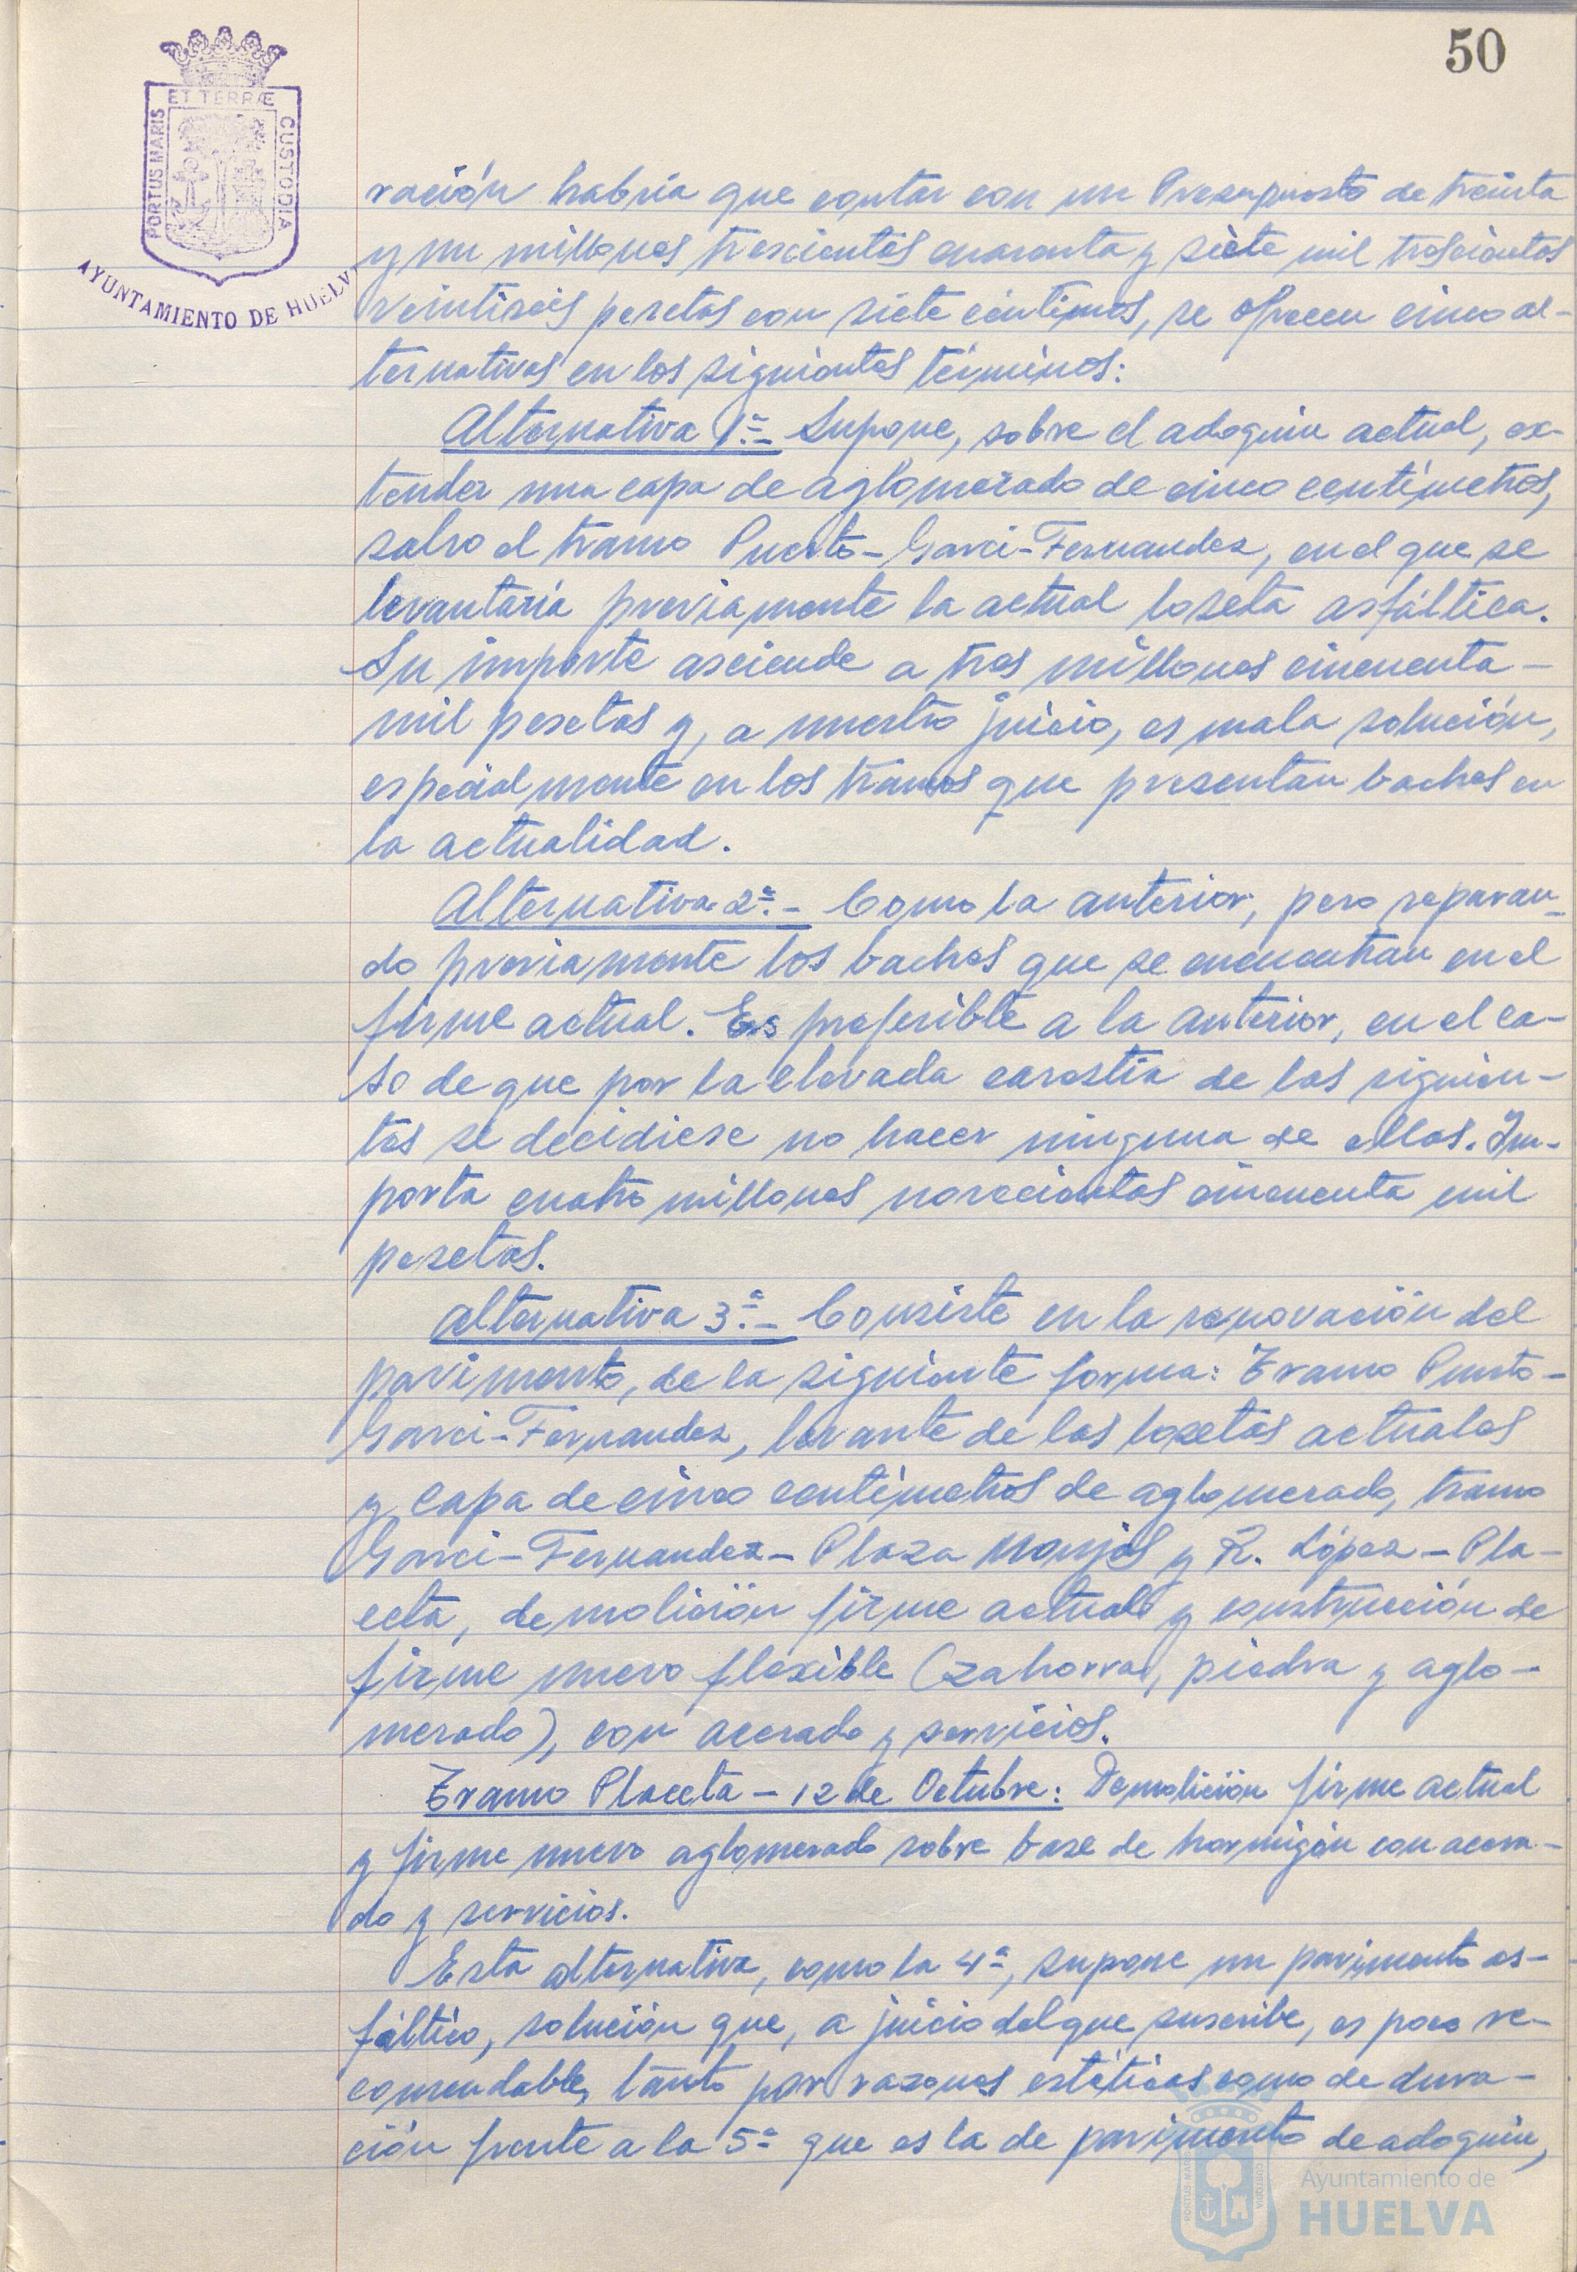 50
ET TERRÆ
PORTUS MARIS
CUSTODIA
AYUNTAMIENTO DE HUELV
ración habría que contar con un Presupuesto de treinta
y un millones trescientos cuarenta y siete mil trescientos
veintiseis pesetas con siete céntimos, se ofrecen cinco al-
ternativas en los siguientes términos:
Alternativa 1ª.- Supone, sobre el adoquin actual, ex-
tender una capa de aglomerado de cinco centímetros,
salvo el tramo Puerto-Garci-Fernandez, en el que se
levantaría previamente la actual loseta asfáltica.
Su importe asciende a tres millones cincuenta-
mil pesetas y, a nuestro juicio, es mala solución,
especialmente en los tramos que presentan baches en
la actualidad.
Alternativa 2ª.- Como la anterior, pero reparan-
do previamente los baches que se encuentran en el
firme actual. Es preferible a la anterior, en el ca-
so de que por la elevada carestia de las siguien-
tes se decidiese no hacer ninguna de ellas. Im-
porta cuatro millones novecientas cincuenta mil
pesetas.
Alternativa 3ª.- Consiste en la renovación del
pavimento, de la siguiente forma: Tramo Puerto-
Garci-Fernandez, levante de las losetas actuales
y capa de cinco centímetros de aglomerado, tramo
Garci-Fernandez-Plaza Monjas y R. López-Pla-
ceta, demolición firme actual y construcción de
firme nuevo flexible (zahorra, piedra y aglo-
merado), con acerado y servicios.
Tramo Placeta-12 de Octubre: Demolición firme actual
y firme nuevo aglomerado sobre base de hormigón con acera-
do y servicios.
Esta alternativa, como la 4ª, supone un pavimento as-
fáltico, solución que, a juicio del que suscribe, es poco re-
comendable, tanto por razones estéticas como de dura-
ción frente a la 5ª que es la de pavimento de adoquin,
Ayuntamiento de
HUELVA